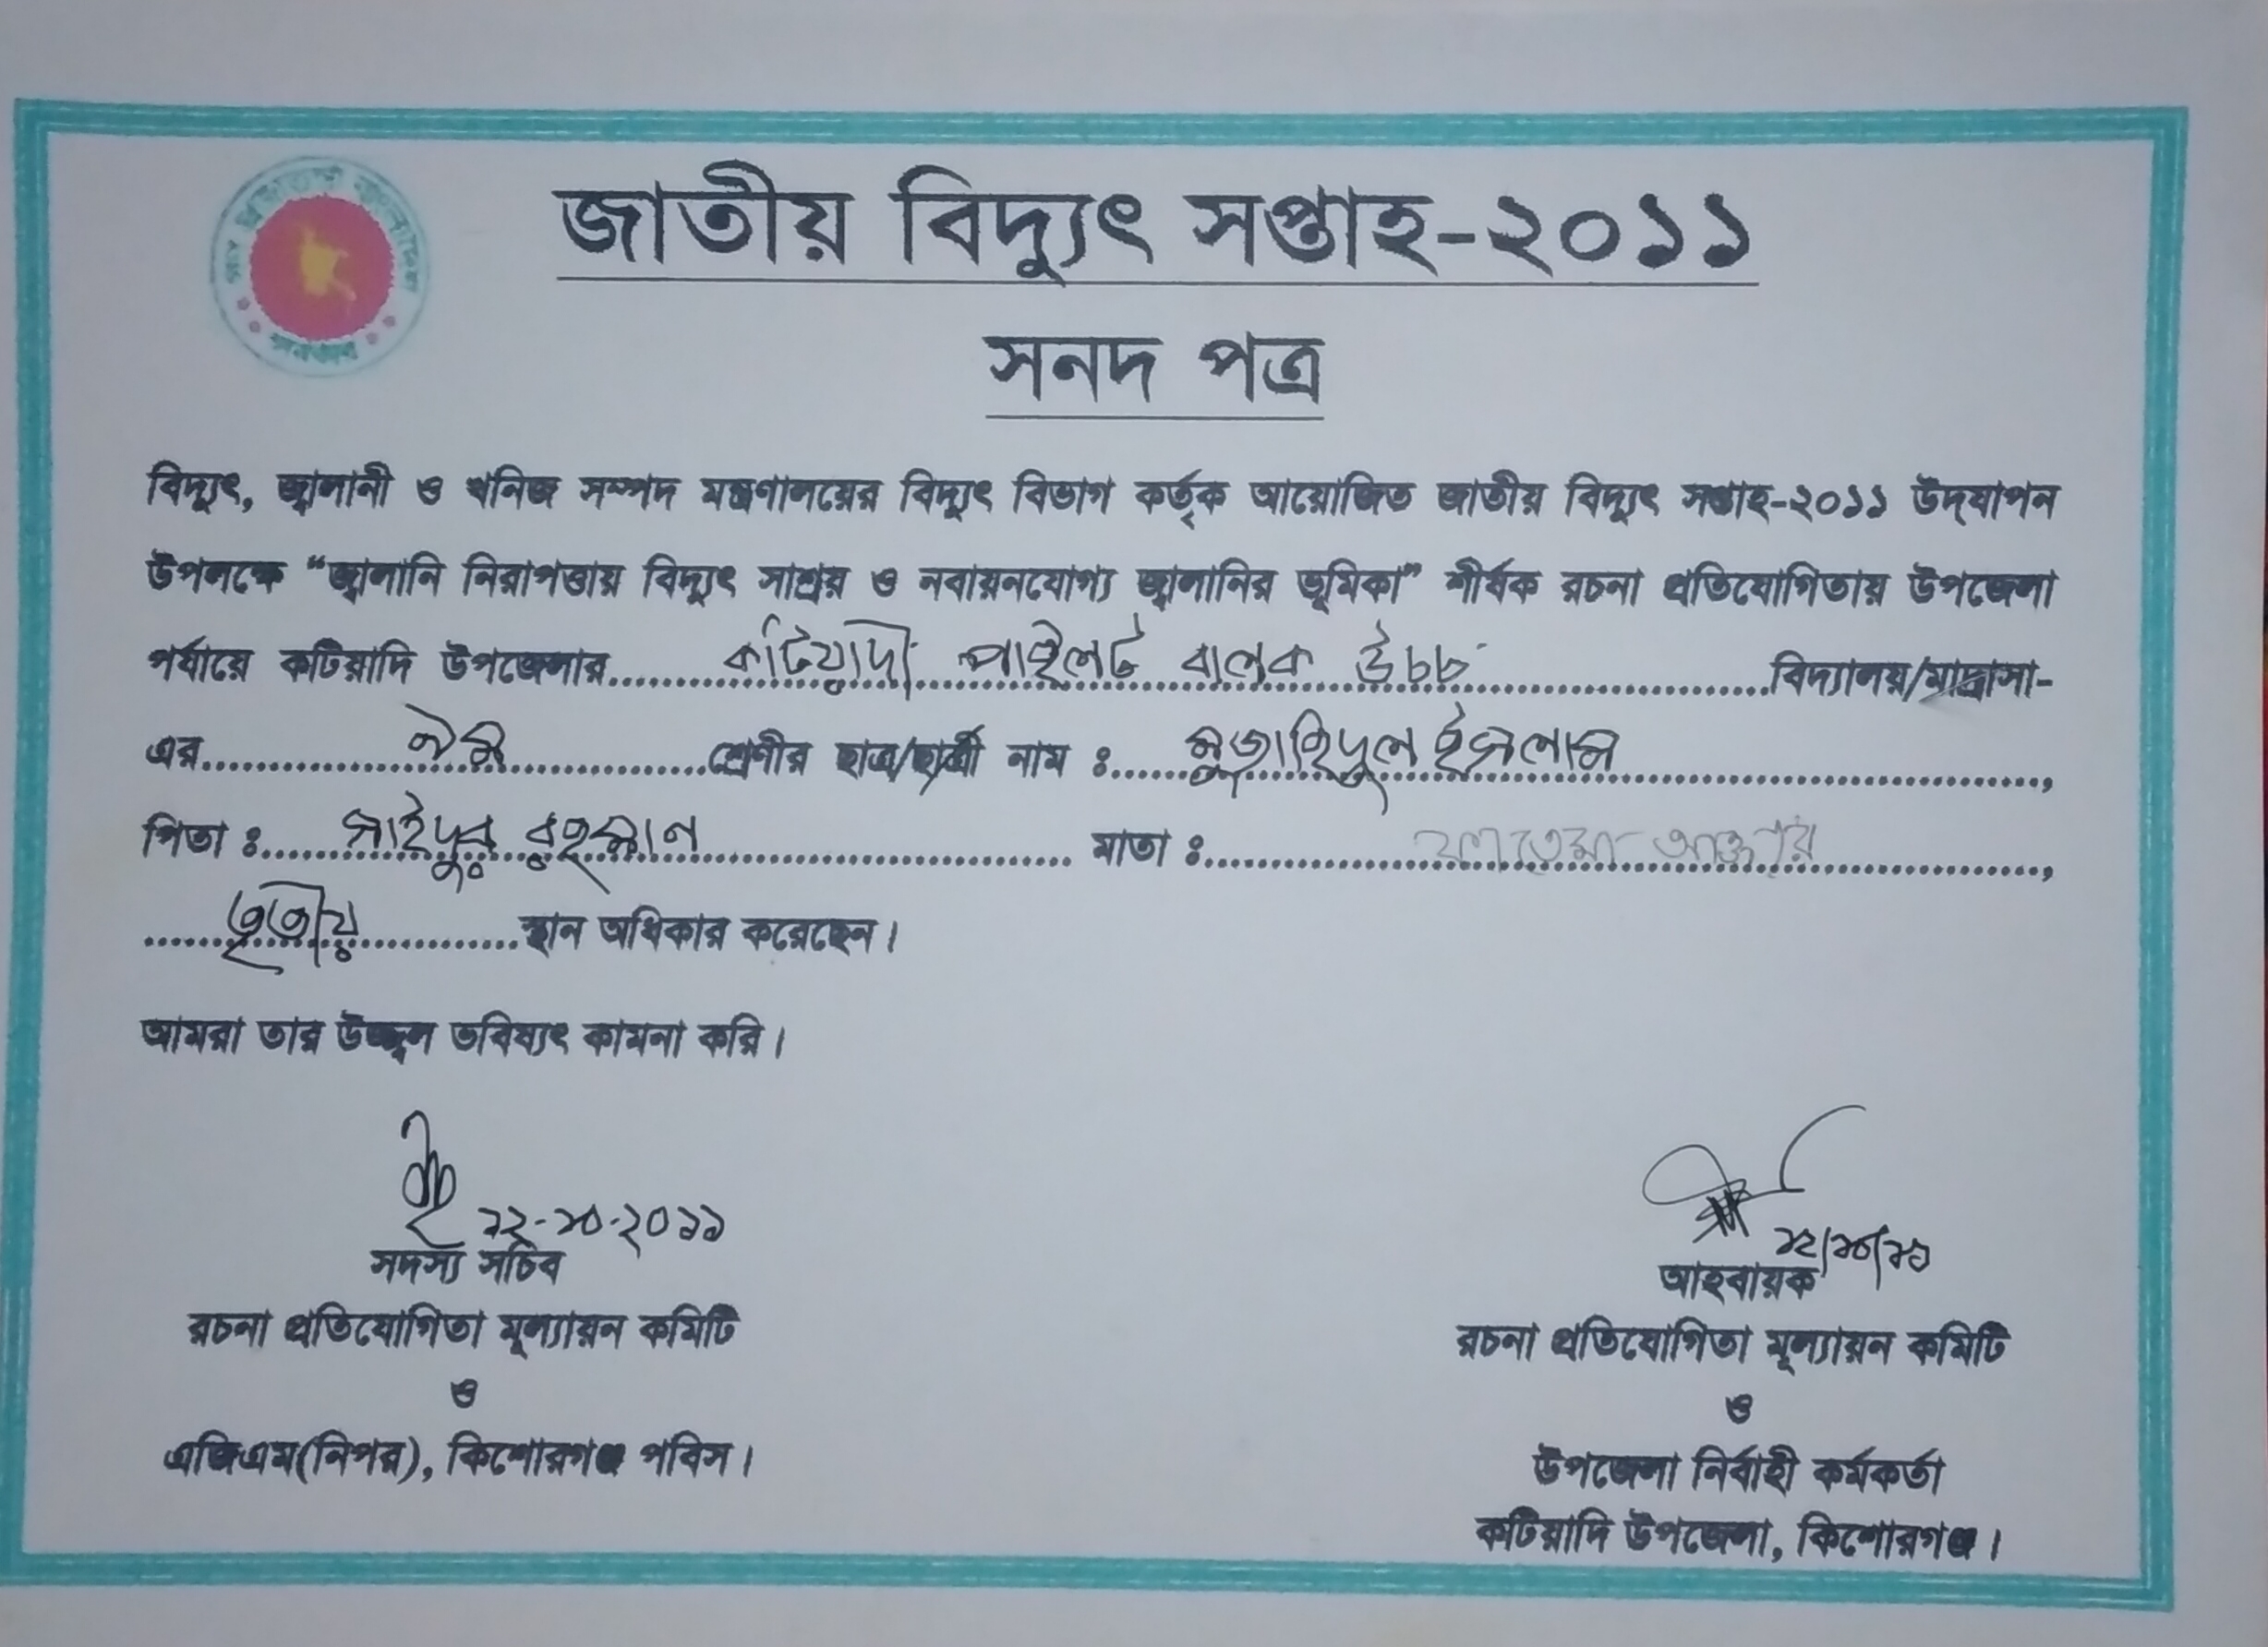 জাতীয় বিদ্যুৎ সপ্তাহ-২০১১
সনদ পত্র
বিদ্যুৎ, জ্বালানী ও খনিজ সম্পদ মন্ত্রণালয়ের বিদ্যুৎ বিভাগ কর্তৃক আয়োজিত জাতীয় বিদ্যুৎ সপ্তাহ-২০১১ উদ্‌যাপন
উপলক্ষে “জ্বালানি নিরাপত্তায় বিদ্যুৎ সাশ্রয় ও নবায়নযোগ্য জ্বালানির ভূমিকা” শীর্ষক রচনা প্রতিযোগিতায় উপজেলা
পর্যায়ে কটিয়াদি উপজেলার..........কটিয়াদী পাইলট বালক উচ্চ..........বিদ্যালয়/মাদ্রাসা-
এর..........নবম..........শ্রেণীর ছাত্র/ছাত্রী নাম ঃ..........মুজাহিদুল ইসলাম..........,
পিতা ঃ..........সাইদুর রহমান.......... মাতা ঃ..........ফাতেমা আক্তার..........,
..........তৃতীয়..........স্থান অধিকার করেছেন।
আমরা তার উজ্জ্বল ভবিষ্যৎ কামনা করি।
১২-১০-২০১১
সদস্য সচিব
রচনা প্রতিযোগিতা মূল্যায়ন কমিটি
ও
এজিএম(নিপর), কিশোরগঞ্জ পবিস।
১২/১০/১১
আহবায়ক
রচনা প্রতিযোগিতা মূল্যায়ন কমিটি
ও
উপজেলা নির্বাহী কর্মকর্তা
কটিয়াদি উপজেলা, কিশোরগঞ্জ।